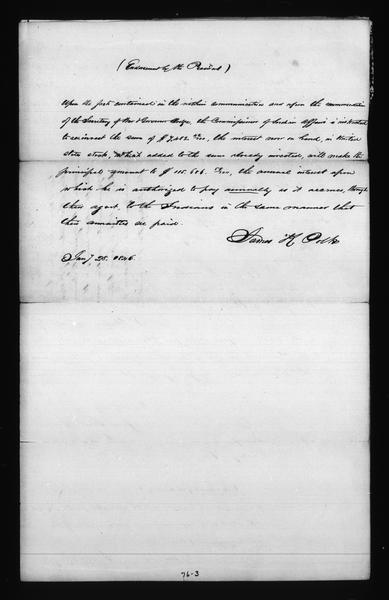 (Endorsement by the President)
Upon the facts contained in the within communication and upon the recommendation
of the Secretary of War & Governor the Commissioner of Indian Affairs is instructed
to reinvest the sum of $ the interest now on hand, in United
State stock, which added to the sum already invested, will make the
principal amount to $ 115.606. the annual interest upon
which he is authorized to pay annually as it accrues, through
their agent, to the Indians in the same manner that
their annuities are paid
James K Polk
Jany 28. 1846.
76-3